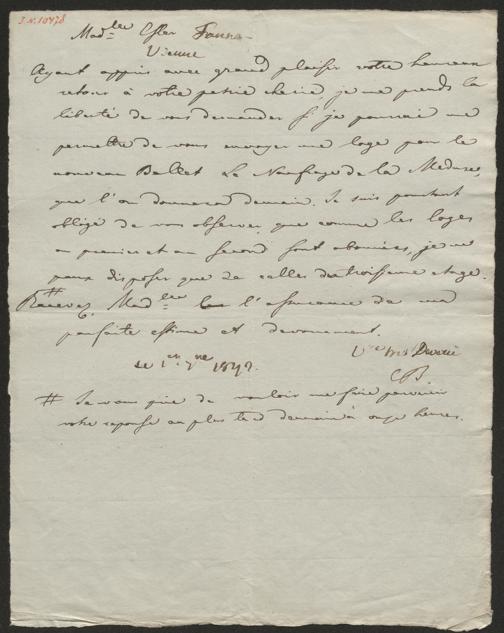 I.N. 10478
Madlle Elsler Fanni
Vienne
Ayant appris avec grand plaisir votre heureux
retour à votre patrie cherie je me prends la
liberté de vous demander si je pourrai me
permettre de vous envoyer une loge pour le
nouveau Ballet Le Naufrage de la Meduse,
que l'on donnera demain. Je suis pourtant
obligé de vos observer, que comme les loges
au premier et au second sont abonnées, je ne
peux disposer que de celles du troisieme etage.
# Recevez, Madlle l'assurance de ma
parfaite estime et devouement.
Vre tres Devoué
CB
le 1er 7bre 1842.
# Je vous prie de vouloir me faire parvenir
votre reponse au plus tard demain à onze heures.